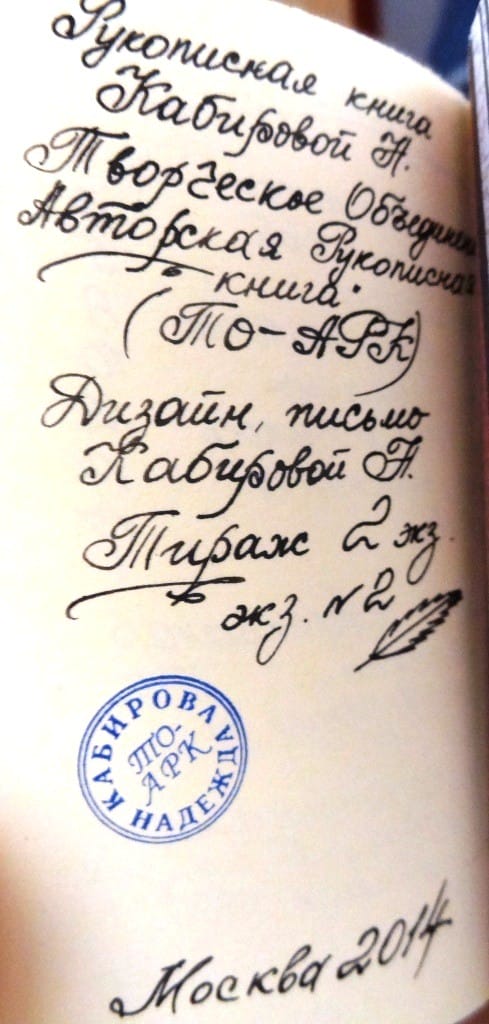 Рукописная книга
Кабировой Н.
Творческое Объединение
Авторская Рукописная
книга.
(ТО-АРК)
Дизайн, письмо
Кабировой Н.
Тираж 2 экз.
экз. N2
КАБИРОВА НАДЕЖДА
ТО-
АРК
Москва 2014